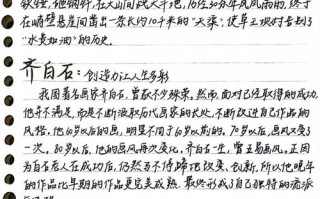 欲强,他钢钎,在大山间战天斗地,历经30多年风风雨雨,终于
在峭壁悬崖间凿出一条长约10千米的"天渠",使草王坝村告别了
"水贵如油"的历史。
齐白石:创造力让人生多彩
我国著名画家齐白石,曾获不少殊荣。然而,面对已经取得的成功,
他并不满足,而是不断汲取历代画家的长处,不断改进自己作品的
风格。他60岁以后的画,明显不同于60岁以前的。70岁以后,画风又变了
一次。80岁以后,他的画风再次变化。齐白石一生,曾五易画风。正因
为白石老人在成功后,仍然马不停蹄地改变、创新,所以他晚年
的作品比早期的作品更完美成熟,最终形成了自己独特的流派
与风格